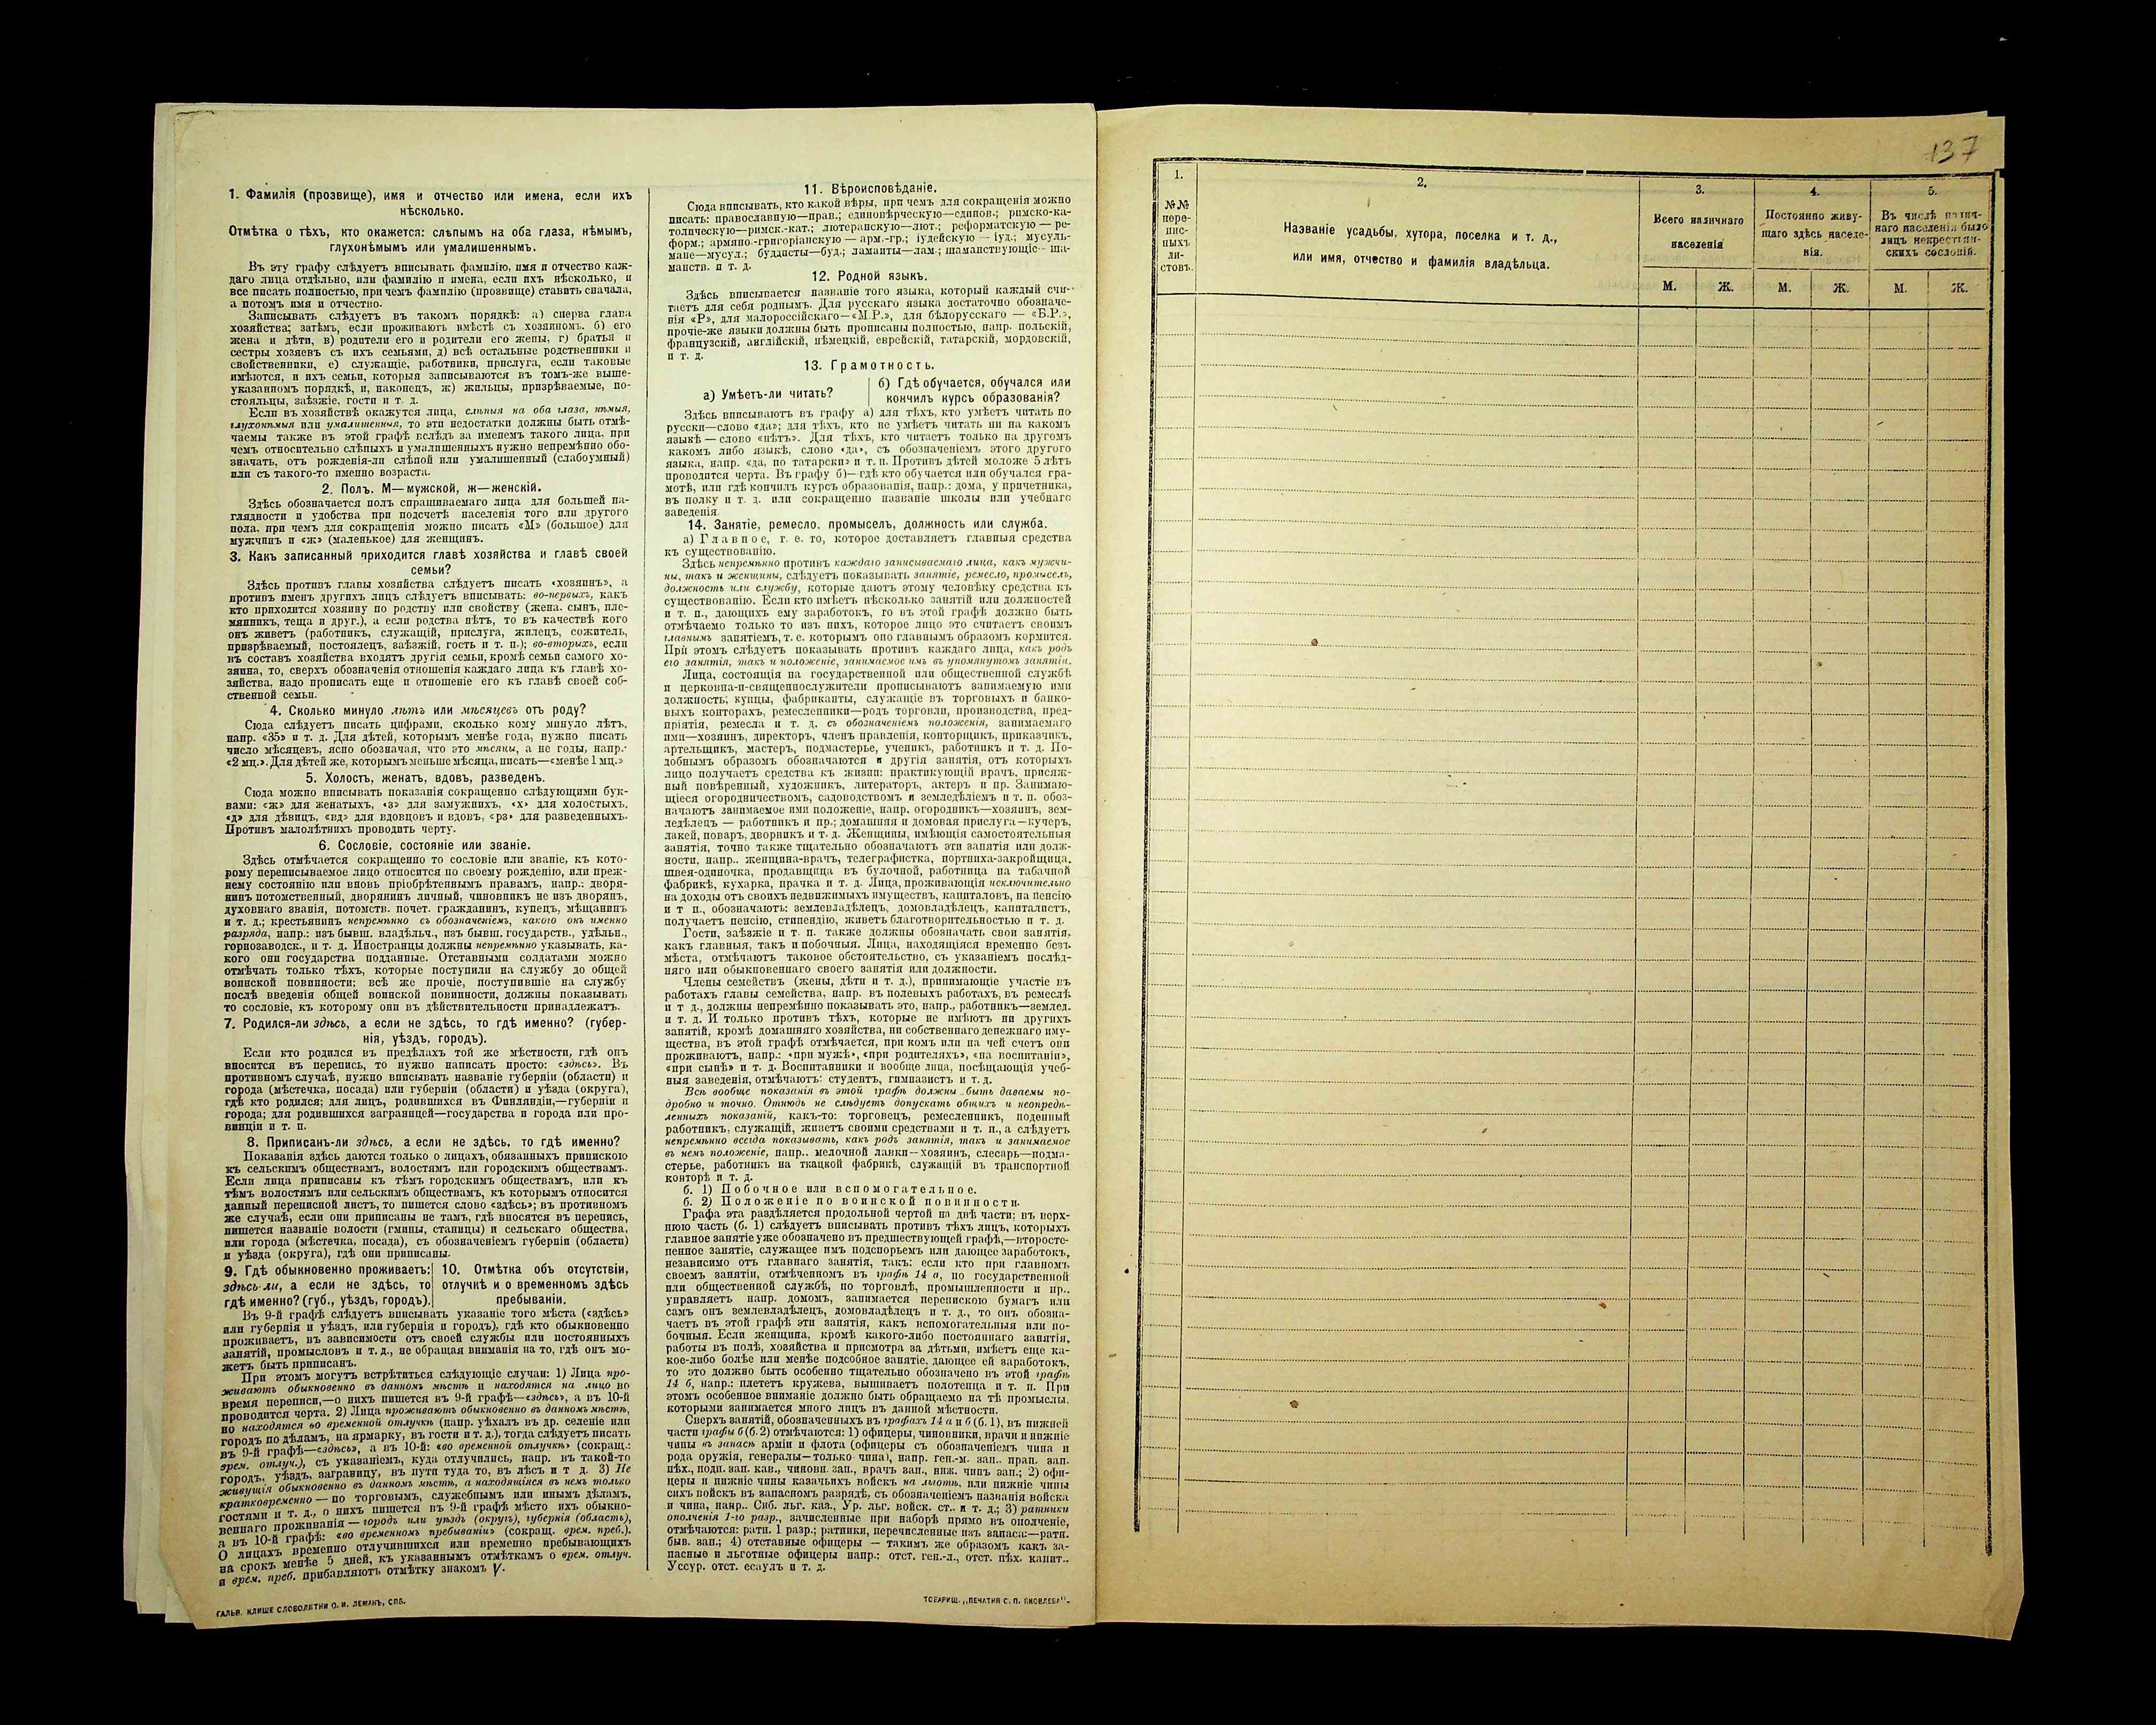 1. Фамилія (прозвище), имя и отчество или имена, если ихъ
нѣсколько.
Отмѣтка о тѣхъ, кто окажется: слѣпымъ на оба глаза, нѣмымъ,
глухонѣмымъ или умалишеннымъ.
Въ эту графу слѣдуетъ вписывать фамилію, имя и отчество каж-
даго лица отдѣльно, или фамилію и имена, если ихъ нѣсколько, и
все писать полностью, при чемъ фамилію (прозвище) ставить сначала,
а потомъ имя и отчество.
Записывать слѣдуетъ въ такомъ порядкѣ: а) сперва глава
хозяйства; затѣмъ, если проживаютъ вмѣстѣ съ хозяиномъ. б) его
жена и дѣти, в) родители его и родители его жены, г) братья и
сестры хозяевъ съ ихъ семьями, д) всѣ остальные родственники и
свойственники, е) служащіе, работники, прислуга, если таковые
имѣются, и ихъ семьи, которыя записываются въ томъ-же выше-
указанномъ порядкѣ, и, наконецъ, ж) жильцы, призрѣваемые, по-
стояльцы, заѣзжіе, гости и т. д.
Если въ хозяйствѣ окажутся лица, слѣпыя на оба глаза, нѣмыя,
глухонѣмыя или умалишенныя, то эти недостатки должны быть отмѣ-
чаемы также въ этой графѣ вслѣдъ за именемъ такого лица, при
чемъ относительно слѣпыхъ и умалишенныхъ нужно непремѣнно обо-
значать, отъ рожденія-ли слѣпой или умалишенный (слабоумный)
или съ такого-то именно возраста.
2. Полъ. М—мужской, ж—женскій.
Здѣсь обозначается полъ спрашиваемаго лица для большей на-
глядности и удобства при подсчетѣ населенія того или другого
пола, при чемъ для сокращенія можно писать «М» (большое) для
мужчинъ и «ж» (маленькое) для женщинъ.
3. Какъ записанный приходится главѣ хозяйства и главѣ своей
семьи?
Здѣсь противъ главы хозяйства слѣдуетъ писать «хозяинъ», а
противъ именъ другихъ лицъ слѣдуетъ вписывать: во-первыхъ, какъ
кто приходится хозяину по родству или свойству (жена, сынъ, пле-
мянникъ, теща и друг.), а если родства нѣтъ, то въ качествѣ кого
онъ живетъ (работникъ, служащій, прислуга, жилецъ, сожитель,
призрѣваемый, постоялецъ, заѣзжій, гость и т. п.); во-вторыхъ, если
въ составъ хозяйства входятъ другія семьи, кромѣ семьи самого хо-
зяина, то, сверхъ обозначенія отношенія каждаго лица къ главѣ хо-
зяйства, надо прописать еще и отношеніе его къ главѣ своей соб-
ственной семьи.
4. Сколько минуло лѣтъ или мѣсяцевъ отъ роду?
Сюда слѣдуетъ писать цифрами, сколько кому минуло лѣтъ,
напр. «35» и т. д. Для дѣтей, которымъ менѣе года, нужно писать
число мѣсяцевъ, ясно обозначая, что это мѣсяцы, а не годы, напр.
«2 мц.». Для дѣтей же, которымъ меньше мѣсяца, писать—«менѣе 1 мц.»
5. Холостъ, женатъ, вдовъ, разведенъ.
Сюда можно вписывать показанія сокращенно слѣдующими бук-
вами: «ж» для женатыхъ, «з» для замужнихъ, «х» для холостыхъ,
«д» для дѣвицъ, «вд» для вдовцовъ и вдовъ, «рз» для разведенныхъ.
Противъ малолѣтнихъ проводить черту.
6. Сословіе, состояніе или званіе.
Здѣсь отмѣчается сокращенно то сословіе или званіе, къ кото-
рому переписываемое лицо относится по своему рожденію, или преж-
нему состоянію или вновь пріобрѣтеннымъ правамъ, напр.: дворя-
нинъ потомственный, дворянинъ личный, чиновникъ не изъ дворянъ,
духовнаго званія, потомств. почет. гражданинъ, купецъ, мѣщанинъ
и т. д.; крестьянинъ непремѣнно съ обозначеніемъ, какого онъ именно
разряда, напр.: изъ бывш. владѣльч., изъ бывш. государств., удѣльн.,
горнозаводск., и т. д. Иностранцы должны непремѣнно указывать, ка-
кого они государства подданные. Отставными солдатами можно
отмѣчать только тѣхъ, которые поступили на службу до общей
воинской повинности; всѣ же прочіе, поступившіе на службу
послѣ введенія общей воинской повинности, должны показывать
то сословіе, къ которому они въ дѣйствительности принадлежатъ.
7. Родился-ли здѣсь, а если не здѣсь, то гдѣ именно? (губер-
нія, уѣздъ, городъ).
Если кто родился въ предѣлахъ той же мѣстности, гдѣ онъ
вносится въ перепись, то нужно написать просто: «здѣсь». Въ
противномъ случаѣ, нужно вписывать названіе губерніи (области) и
города (мѣстечка, посада) или губерніи (области) и уѣзда (округа),
гдѣ кто родился; для лицъ, родившихся въ Финляндіи,—губерніи и
города; для родившихся заграницей—государства и города или про-
винціи и т. п.
8. Приписанъ-ли здѣсь, а если не здѣсь, то гдѣ именно?
Показанія здѣсь даются только о лицахъ, обязанныхъ припискою
къ сельскимъ обществамъ, волостямъ или городскимъ обществамъ.
Если лица приписаны къ тѣмъ городскимъ обществамъ, или къ
тѣмъ волостямъ или сельскимъ обществамъ, къ которымъ относится
данный переписной листъ, то пишется слово «здѣсь»; въ противномъ
же случаѣ, если они приписаны не тамъ, гдѣ вносятся въ перепись,
пишется названіе волости (гмины, станицы) и сельскаго общества,
или города (мѣстечка, посада), съ обозначеніемъ губерніи (области)
и уѣзда (округа), гдѣ они приписаны.
9. Гдѣ обыкновенно проживаетъ:
здѣсь-ли, а если не здѣсь, то
гдѣ именно? (губ., уѣздъ, городъ).
10. Отмѣтка объ отсутствіи,
отлучкѣ и о временномъ здѣсь
пребываніи.
Въ 9-й графѣ слѣдуетъ вписывать указаніе того мѣста («здѣсь»
или губернія и уѣздъ, или губернія и городъ), гдѣ кто обыкновенно
проживаетъ, въ зависимости отъ своей службы или постоянныхъ
занятій, промысловъ и т. д., не обращая вниманія на то, гдѣ онъ мо-
жетъ быть приписанъ.
При этомъ могутъ встрѣтиться слѣдующіе случаи: 1) Лица про-
живаютъ обыкновенно въ данномъ мѣстѣ и находятся на лицо во
время переписи,—о нихъ пишется въ 9-й графѣ—«здѣсь», а въ 10-й
проводится черта. 2) Лица проживаютъ обыкновенно въ данномъ мѣстѣ,
но находятся во временной отлучкѣ (напр. уѣхалъ въ др. селеніе или
городъ по дѣламъ, на ярмарку, въ гости и т. д.), тогда слѣдуетъ писать
въ 9-й графѣ—«здѣсь», а въ 10-й: «во временной отлучкѣ» (сокращ.:
врем. отлуч.), съ указаніемъ, куда отлучились, напр. въ такой-то
городъ, уѣздъ, заграницу, въ пути туда то, въ лѣсъ и т д. 3) Не
живущія обыкновенно въ данномъ мѣстѣ, а находящіяся въ немъ только
кратковременно — по торговымъ, служебнымъ или инымъ дѣламъ,
гостями и т. д., о нихъ пишется въ 9-й графѣ мѣсто ихъ обыкно-
веннаго проживанія — городъ или уѣздъ (округъ), губернія (область),
а въ 10-й графѣ: «во временномъ пребываніи» (сокращ. врем. преб.).
О лицахъ временно отлучившихся или временно пребывающихъ
на срокъ менѣе 5 дней, къ указаннымъ отмѣткамъ о врем. отлуч.
и врем. преб. прибавляютъ отмѣтку знакомъ V.
ГАЛЬВ. КЛИШЕ СЛОВОЛИТНИ О. И. ЛЕМАНЪ, СПБ.
11. Вѣроисповѣданіе.
Сюда вписывать, кто какой вѣры, при чемъ для сокращенія можно
писать: православную—прав.; единовѣрческую—единов.; римско-ка-
толическую—римск.-кат.; лютеранскую—лют.; реформатскую — ре-
форм.; армяно.-григоріанскую — арм.-гр.; іудейскую — іуд.; мусуль-
мане—мусул.; буддисты—буд.; ламаиты—лам.; шаманствующіе — ша-
манств. и т. д.
12. Родной языкъ.
Здѣсь вписывается названіе того языка, который каждый счи-
таетъ для себя роднымъ. Для русскаго языка достаточно обозначе-
нія «Р», для малороссійскаго—«М.Р.», для бѣлорусскаго — «Б.Р.»,
прочіе-же языки должны быть прописаны полностью, напр. польскій,
французскій, англійскій, нѣмецкій, еврейскій, татарскій, мордовскій,
и т. д.
13. Грамотность.
а) Умѣетъ-ли читать?
б) Гдѣ обучается, обучался или
кончилъ курсъ образованія?
Здѣсь вписываютъ въ графу а) для тѣхъ, кто умѣетъ читать по
русски—слово «да»; для тѣхъ, кто не умѣетъ читать ни на какомъ
языкѣ — слово «нѣтъ». Для тѣхъ, кто читаетъ только на другомъ
какомъ либо языкѣ, слово «да», съ обозначеніемъ этого другого
языка, напр. «да, по татарски» и т. п. Противъ дѣтей моложе 5 лѣтъ
проводится черта. Въ графу б)—гдѣ кто обучается или обучался гра-
мотѣ, или гдѣ кончилъ курсъ образованія, напр.: дома, у причетника,
въ полку и т. д. или сокращенно названіе школы или учебнаго
заведенія.
14. Занятіе, ремесло, промыселъ, должность или служба.
а) Главное, т. е. то, которое доставляетъ главныя средства
къ существованію.
Здѣсь непремѣнно противъ каждаго записываемаго лица, какъ мужчи-
ны, такъ и женщины, слѣдуетъ показывать занятіе, ремесло, промыселъ,
должность или службу, которые даютъ этому человѣку средства къ
существованію. Если кто имѣетъ нѣсколько занятій или должностей
и т. п., дающихъ ему заработокъ, то въ этой графѣ должно быть
отмѣчаемо только то изъ нихъ, которое лицо это считаетъ своимъ
главнымъ занятіемъ, т. е. которымъ оно главнымъ образомъ кормится.
При этомъ слѣдуетъ показывать противъ каждаго лица, какъ родъ
его занятія, такъ и положеніе, занимаемое имъ въ упомянутомъ занятіи.
Лица, состоящія на государственной или общественной службѣ
и церковно-и-священнослужители прописываютъ занимаемую ими
должность; купцы, фабриканты, служащіе въ торговыхъ и банко-
выхъ конторахъ, ремесленники—родъ торговли, производства, пред-
пріятія, ремесла и т. д. съ обозначеніемъ положенія, занимаемаго
ими—хозяинъ, директоръ, членъ правленія, конторщикъ, приказчикъ,
артельщикъ, мастеръ, подмастерье, ученикъ, работникъ и т. д. По-
добнымъ образомъ обозначаются и другія занятія, отъ которыхъ
лицо получаетъ средства къ жизни: практикующій врачъ, присяж-
ный повѣренный, художникъ, литераторъ, актеръ и пр. Занимаю-
щіеся огородничествомъ, садоводствомъ и земледѣліемъ и т. п. обоз-
начаютъ занимаемое ими положеніе, напр. огородникъ—хозяинъ, зем-
ледѣлецъ — работникъ и пр.; домашняя и домовая прислуга—кучеръ,
лакей, поваръ, дворникъ и т. д. Женщины, имѣющія самостоятельныя
занятія, точно также тщательно обозначаютъ эти занятія или долж-
ности, напр.. женщина-врачъ, телеграфистка, портниха-закройщица,
швея-одиночка, продавщица въ булочной, работница на табачной
фабрикѣ, кухарка, прачка и т. д. Лица, проживающія исключительно
на доходы отъ своихъ недвижимыхъ имуществъ, капиталовъ, на пенсію
и т п., обозначаютъ: землевладѣлецъ, домовладѣлецъ, капиталистъ,
получаетъ пенсію, стипендію, живетъ благотворительностью и т. д.
Гости, заѣзжіе и т. п. также должны обозначать свои занятія,
какъ главныя, такъ и побочныя. Лица, находящіяся временно безъ
мѣста, отмѣчаютъ таковое обстоятельство, съ указаніемъ послѣд-
няго или обыкновеннаго своего занятія или должности.
Члены семействъ (жены, дѣти и т. д.), принимающіе участіе въ
работахъ главы семейства, напр. въ полевыхъ работахъ, въ ремеслѣ
и т д., должны непремѣнно показывать это, напр., работникъ—землед.
и т. д. И только противъ тѣхъ, которые не имѣютъ ни другихъ
занятій, кромѣ домашняго хозяйства, ни собственнаго денежнаго иму-
щества, въ этой графѣ отмѣчается, при комъ или на чей счетъ они
проживаютъ, напр.: «при мужѣ», «при родителяхъ», «на воспитаніи»,
«при сынѣ» и т. д. Воспитанники и вообще лица, посѣщающія учеб-
ныя заведенія, отмѣчаютъ: студентъ, гимназистъ и т. д.
Всѣ вообще показанія въ этой графѣ должны быть даваемы по-
дробно и точно. Отнюдь не слѣдуетъ допускать общихъ и неопредѣ-
ленныхъ показаній, какъ-то: торговецъ, ремесленникъ, поденный
работникъ, служащій, живетъ своими средствами и т. п., а слѣдуетъ
непремѣнно всегда показывать, какъ родъ занятія, такъ и занимаемое
въ немъ положеніе, напр.. мелочной лавки--хозяинъ, слесарь—подма-
стерье, работникъ на ткацкой фабрикѣ, служащій въ транспортной
конторѣ и т. д.
б. 1) Побочное или вспомогательное.
б. 2) Положеніе по воинской повинности.
Графа эта раздѣляется продольной чертой на двѣ части; въ верх-
нюю часть (б. 1) слѣдуетъ вписывать противъ тѣхъ лицъ, которыхъ
главное занятіе уже обозначено въ предшествующей графѣ,—второсте-
пенное занятіе, служащее имъ подспорьемъ или дающее заработокъ,
независимо отъ главнаго занятія, такъ: если кто при главномъ
своемъ занятіи, отмѣченномъ въ графѣ 14 а, по государственной
или общественной службѣ, по торговлѣ, промышленности и пр..
управляетъ напр. домомъ, занимается перепискою бумагъ или
самъ онъ землевладѣлецъ, домовладѣлецъ и т. д., то онъ обозна-
чаетъ въ этой графѣ эти занятія, какъ вспомогательныя или по-
бочныя. Если женщина, кромѣ какого-либо постояннаго занятія,
работы въ полѣ, хозяйства и присмотра за дѣтьми, имѣетъ еще ка-
кое-либо болѣе или менѣе подсобное занятіе, дающее ей заработокъ,
то это должно быть особенно тщательно обозначено въ этой графѣ
14 б, напр.: плететъ кружева, вышиваетъ полотенца и т. п. При
этомъ особенное вниманіе должно быть обращаемо на тѣ промыслы,
которыми занимается много лицъ въ данной мѣстности.
Сверхъ занятій, обозначенныхъ въ графахъ 14 а и б (б. 1), въ нижней
части графы б (б. 2) отмѣчаются: 1) офицеры, чиновники, врачи и нижніе
чины въ запасѣ арміи и флота (офицеры съ обозначеніемъ чина и
рода оружія, генералы—только чина), напр. ген.-м. зап.. прап. зап.
пѣх., подп. зап. кав., чиновн. зап., врачъ зап., ниж. чинъ зап.; 2) офи-
церы и нижніе чины казачьихъ войскъ на льготѣ, или нижніе чины
сихъ войскъ въ запасномъ разрядѣ, съ обозначеніемъ названія войска
и чина, напр.. Сиб. льг. каз., Ур. льг. войск. ст.. и т. д.; 3) ратники
ополченія 1-го разр., зачисленные при наборѣ прямо въ ополченіе,
отмѣчаются: ратн. 1 разр.; ратники, перечисленные изъ запаса:—ратн.
быв. зап.; 4) отставные офицеры — такимъ же образомъ какъ за-
пасные и льготные офицеры напр.: отст. ген.-л., отст. пѣх. капит..
Уссур. отст. есаулъ и т. д.
ТОВАРИЩ. „ПЕЧАТНЯ С. П. ЯКОВЛЕВА“.
137
1.
№№
пере-
пис-
ныхъ
ли-
стовъ.
2.
Названіе усадьбы, хутора, поселка и т. д.,
или имя, отчество и фамилія владѣльца.
3.
Всего наличнаго
населенія
М. Ж.
4.
Постоянно живу-
щаго здѣсь населе-
нія.
М. Ж.
5.
Въ числѣ налич-
наго населенія было
лицъ некрестьян-
скихъ сословій.
М. Ж.